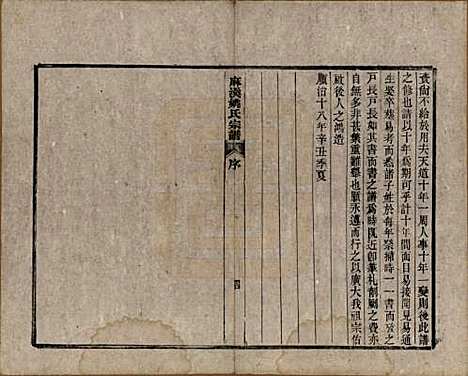 貲尙不給於用夫天道十年一周人事十年一變則後此譜
之修也請以十年爲期可乎計十年間面目易接聞見易通
生娶卒塟易考而悉譜子姓於每年祭掃時一一書而致之
戶長戶長如其書而書之譜爲時旣近卽筆札剞劂之費亦
自無多非甚集重難舉也願永遵而行之以廣大我祖宗佑
啟後人之鴻造
順治十八年辛丑季夏
麻溪姚氏宗譜 序 四